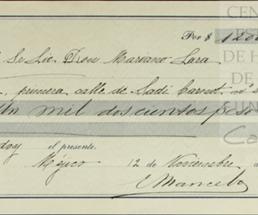 Por $ 1200
Sr. Lic. Don Mariano Lara
primera calle de Sadi Carnot
Un mil doscientos pesos
doy el presente.
Méjico 12 de Noviembre
Marcelo